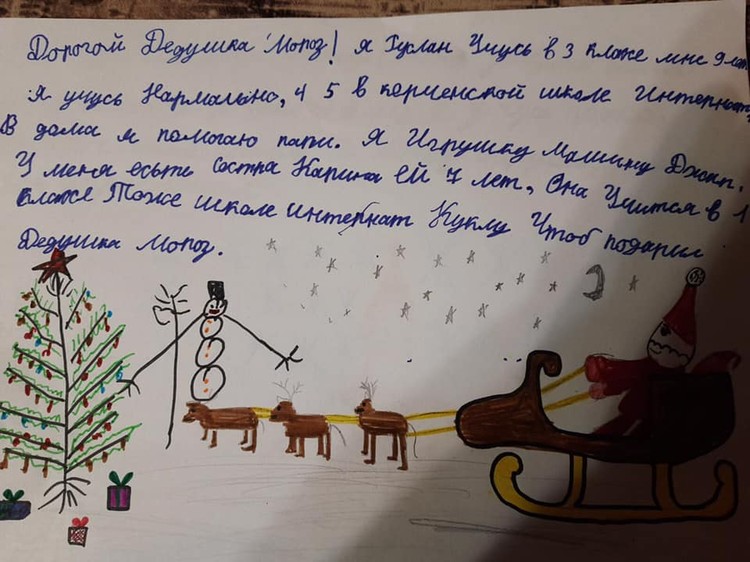 Дорогой Дедушка Мороз! я Руслан Учусь в 3 класе мне 9 лет
я учусь Нармально, 4 5 в керченской школе Интернат,
В дома я помогаю папи. Я Игрушку Машину Джип.
У меня есьть Састра Карина ей 7 лет, Она Учится в 1
класе Тоже школе интернат Куклу Чтоб подарил
Дедушка Мороз.